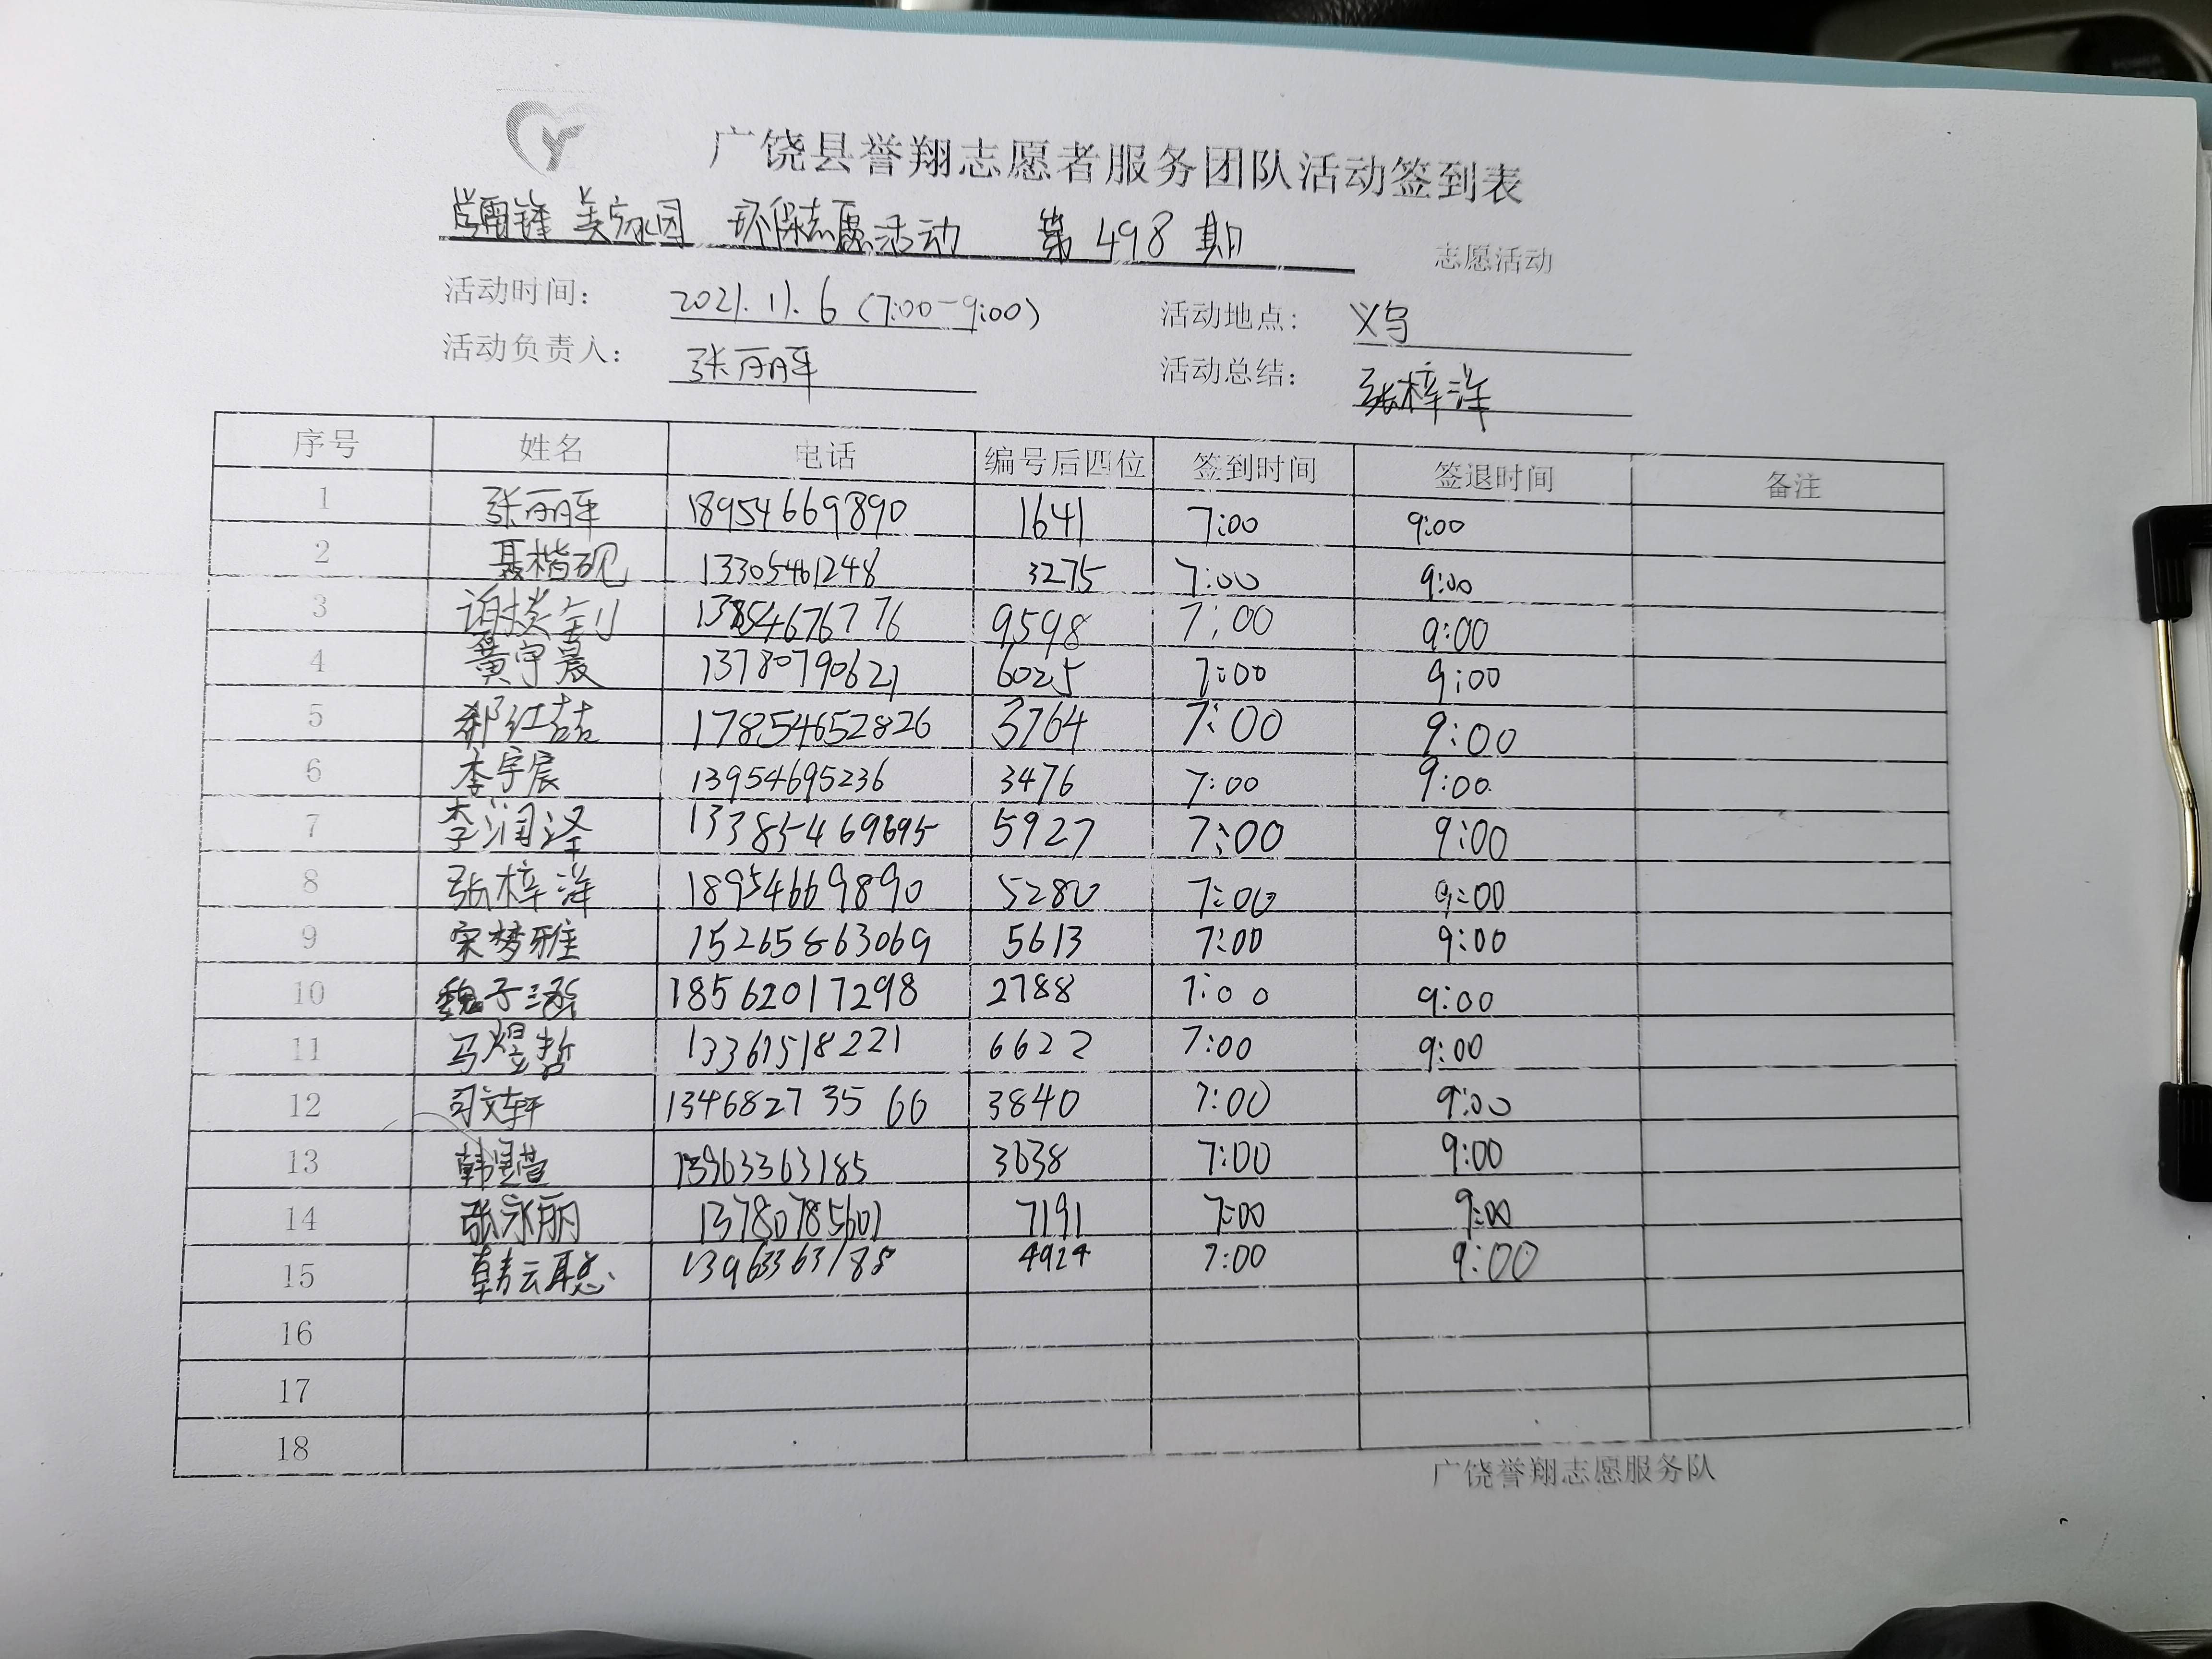 广饶县誉翔志愿者服务团队活动签到表
学雷锋 美家园 环保志愿活动 第 498 期 志愿活动
活动时间： 2021.11.6 (7:00-9:00) 活动地点： 义乌
活动负责人： 张丽萍 活动总结： 张梓洋
序号 姓名 电话 编号后四位 签到时间 签退时间 备注
1 张丽萍 18954669890 1641 7:00 9:00
2 聂楷砚 13305461248 3275 7:00 9:00
3 13854676776 9598 7:00 9:00
4 黄宇晨 13780790621 6025 7:00 9:00
5 郝红喆 17854652826 3764 7:00 9:00
6 李宇宸 13954695236 3476 7:00 9:00
7 李润泽 13385469695 5927 7:00 9:00
8 张梓洋 18954669890 5280 7:00 9:00
9 宋梦雅 15265863069 5613 7:00 9:00
10 魏子涵 18562017298 2788 7:00 9:00
11 马煜哲 13361518221 6622 7:00 9:00
12 司文轩 1346827 35 66 3840 7:00 9:00
13 13963363185 3638 7:00 9:00
14 张永丽 13780785601 7191 7:00 9:00
15 韩云聪 13963363185 4924 7:00 9:00
16
17
18
广饶誉翔志愿服务队